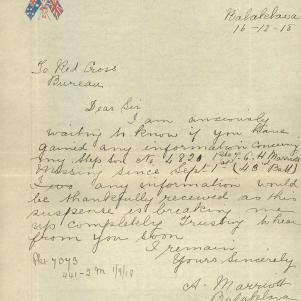 Balaklava
16-12-18
To Red Cross
Bureau
Dear Sir
I am anxiously
waiting to know if you have
gained any information concerning
my Step son No 4820 Pte T. G. H Marriott
Missing since Sept 1st (43 Batt)
any information would
be thankfully received as this
suspense is breaking me
up completely Trusting to hear
from you soon
I remain
Yours Sincerely
A. Marriott
Balaklava
7073
1/9/18